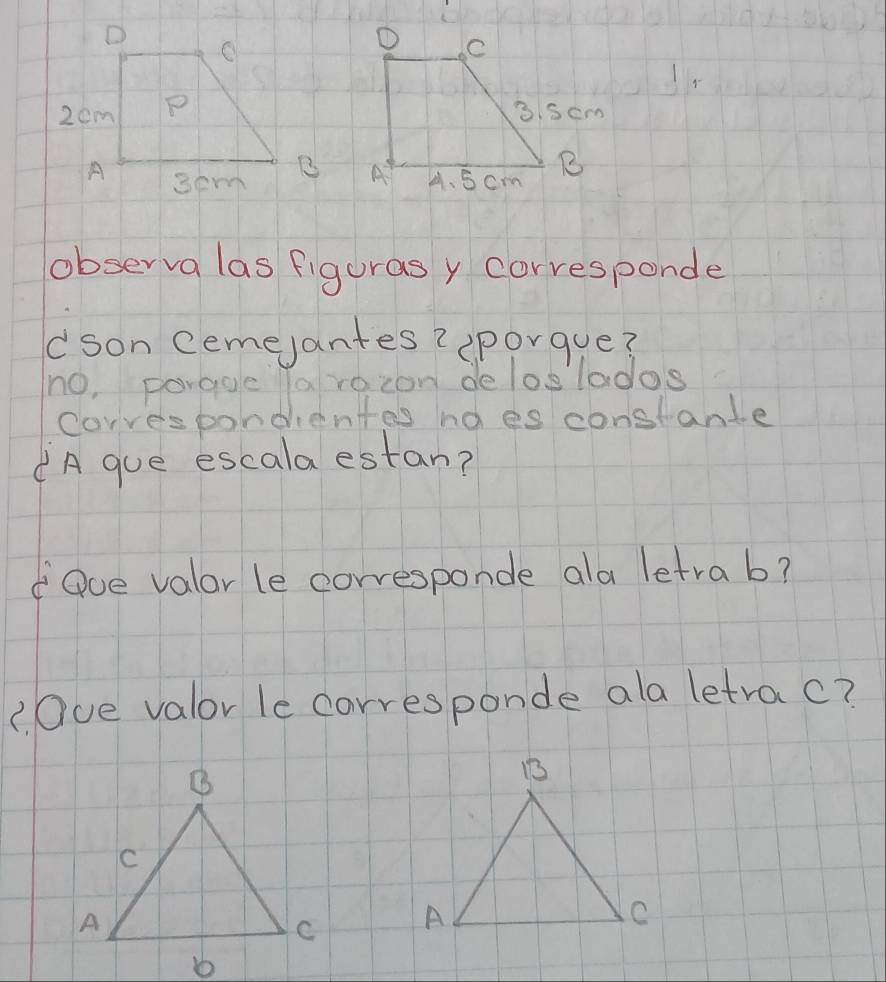 D C D C
2cm P 3.5cm
A 3cm B A 4.5cm B
observa las figuras y corresponde
¿son cemejantes? ¿porque?
no, porque la razon de los lados
correspondientes no es constante
¿A que escala estan?
¿Que valor le corresponde ala letra b?
¿Que valor le corresponde ala letra c?
B B
c
A C A C
b